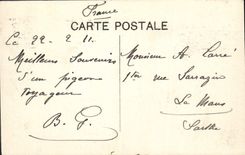 France
CARTE POSTALE
Le 22. 2 11.
Meilleurs Souvenirs
d'un pigeon
voyageur
B. G.
Monsieur A. Carré
1ter rue Sarrazin
Le Mans
Sarthe